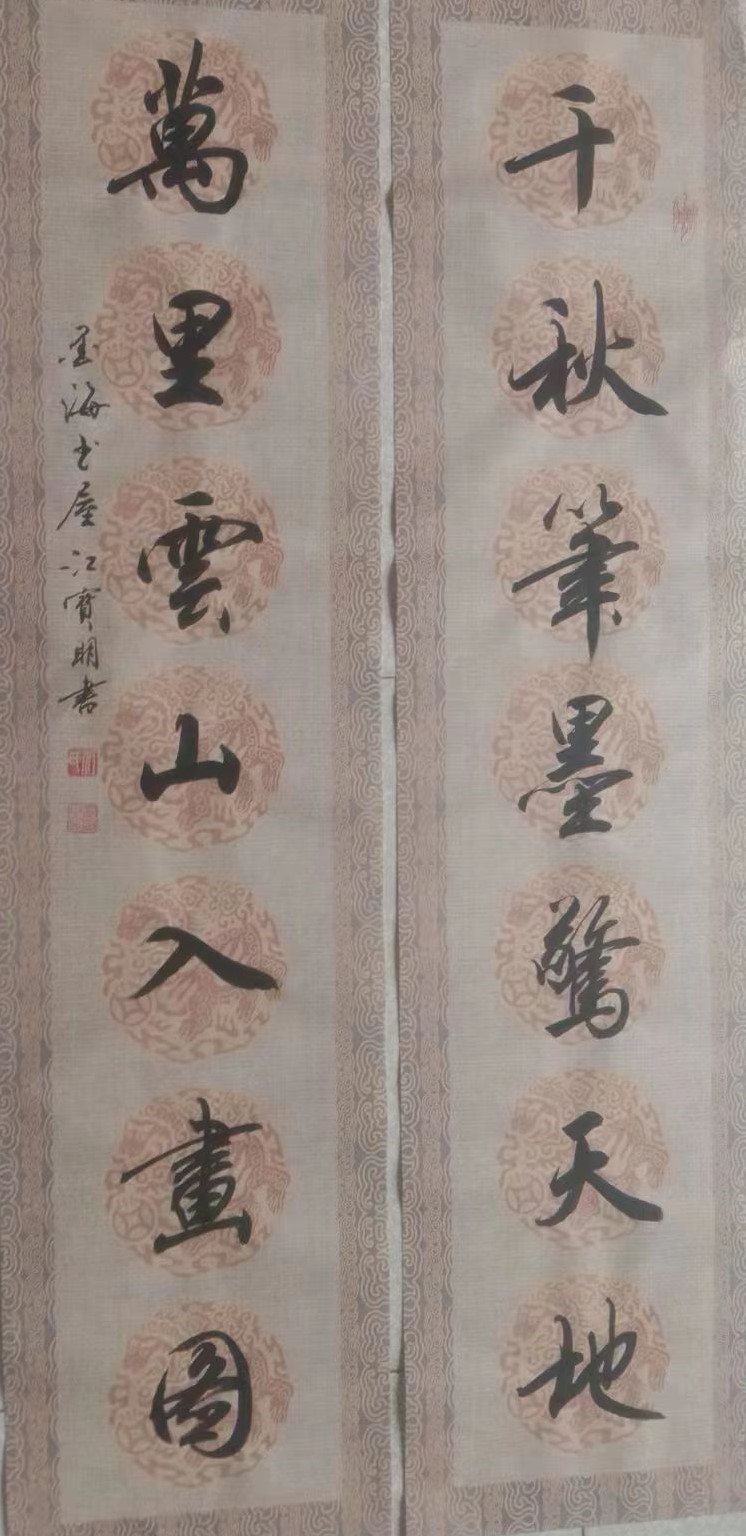 千秋筆墨驚天地
萬里雲山入畫圖
墨海书屋江寳明書